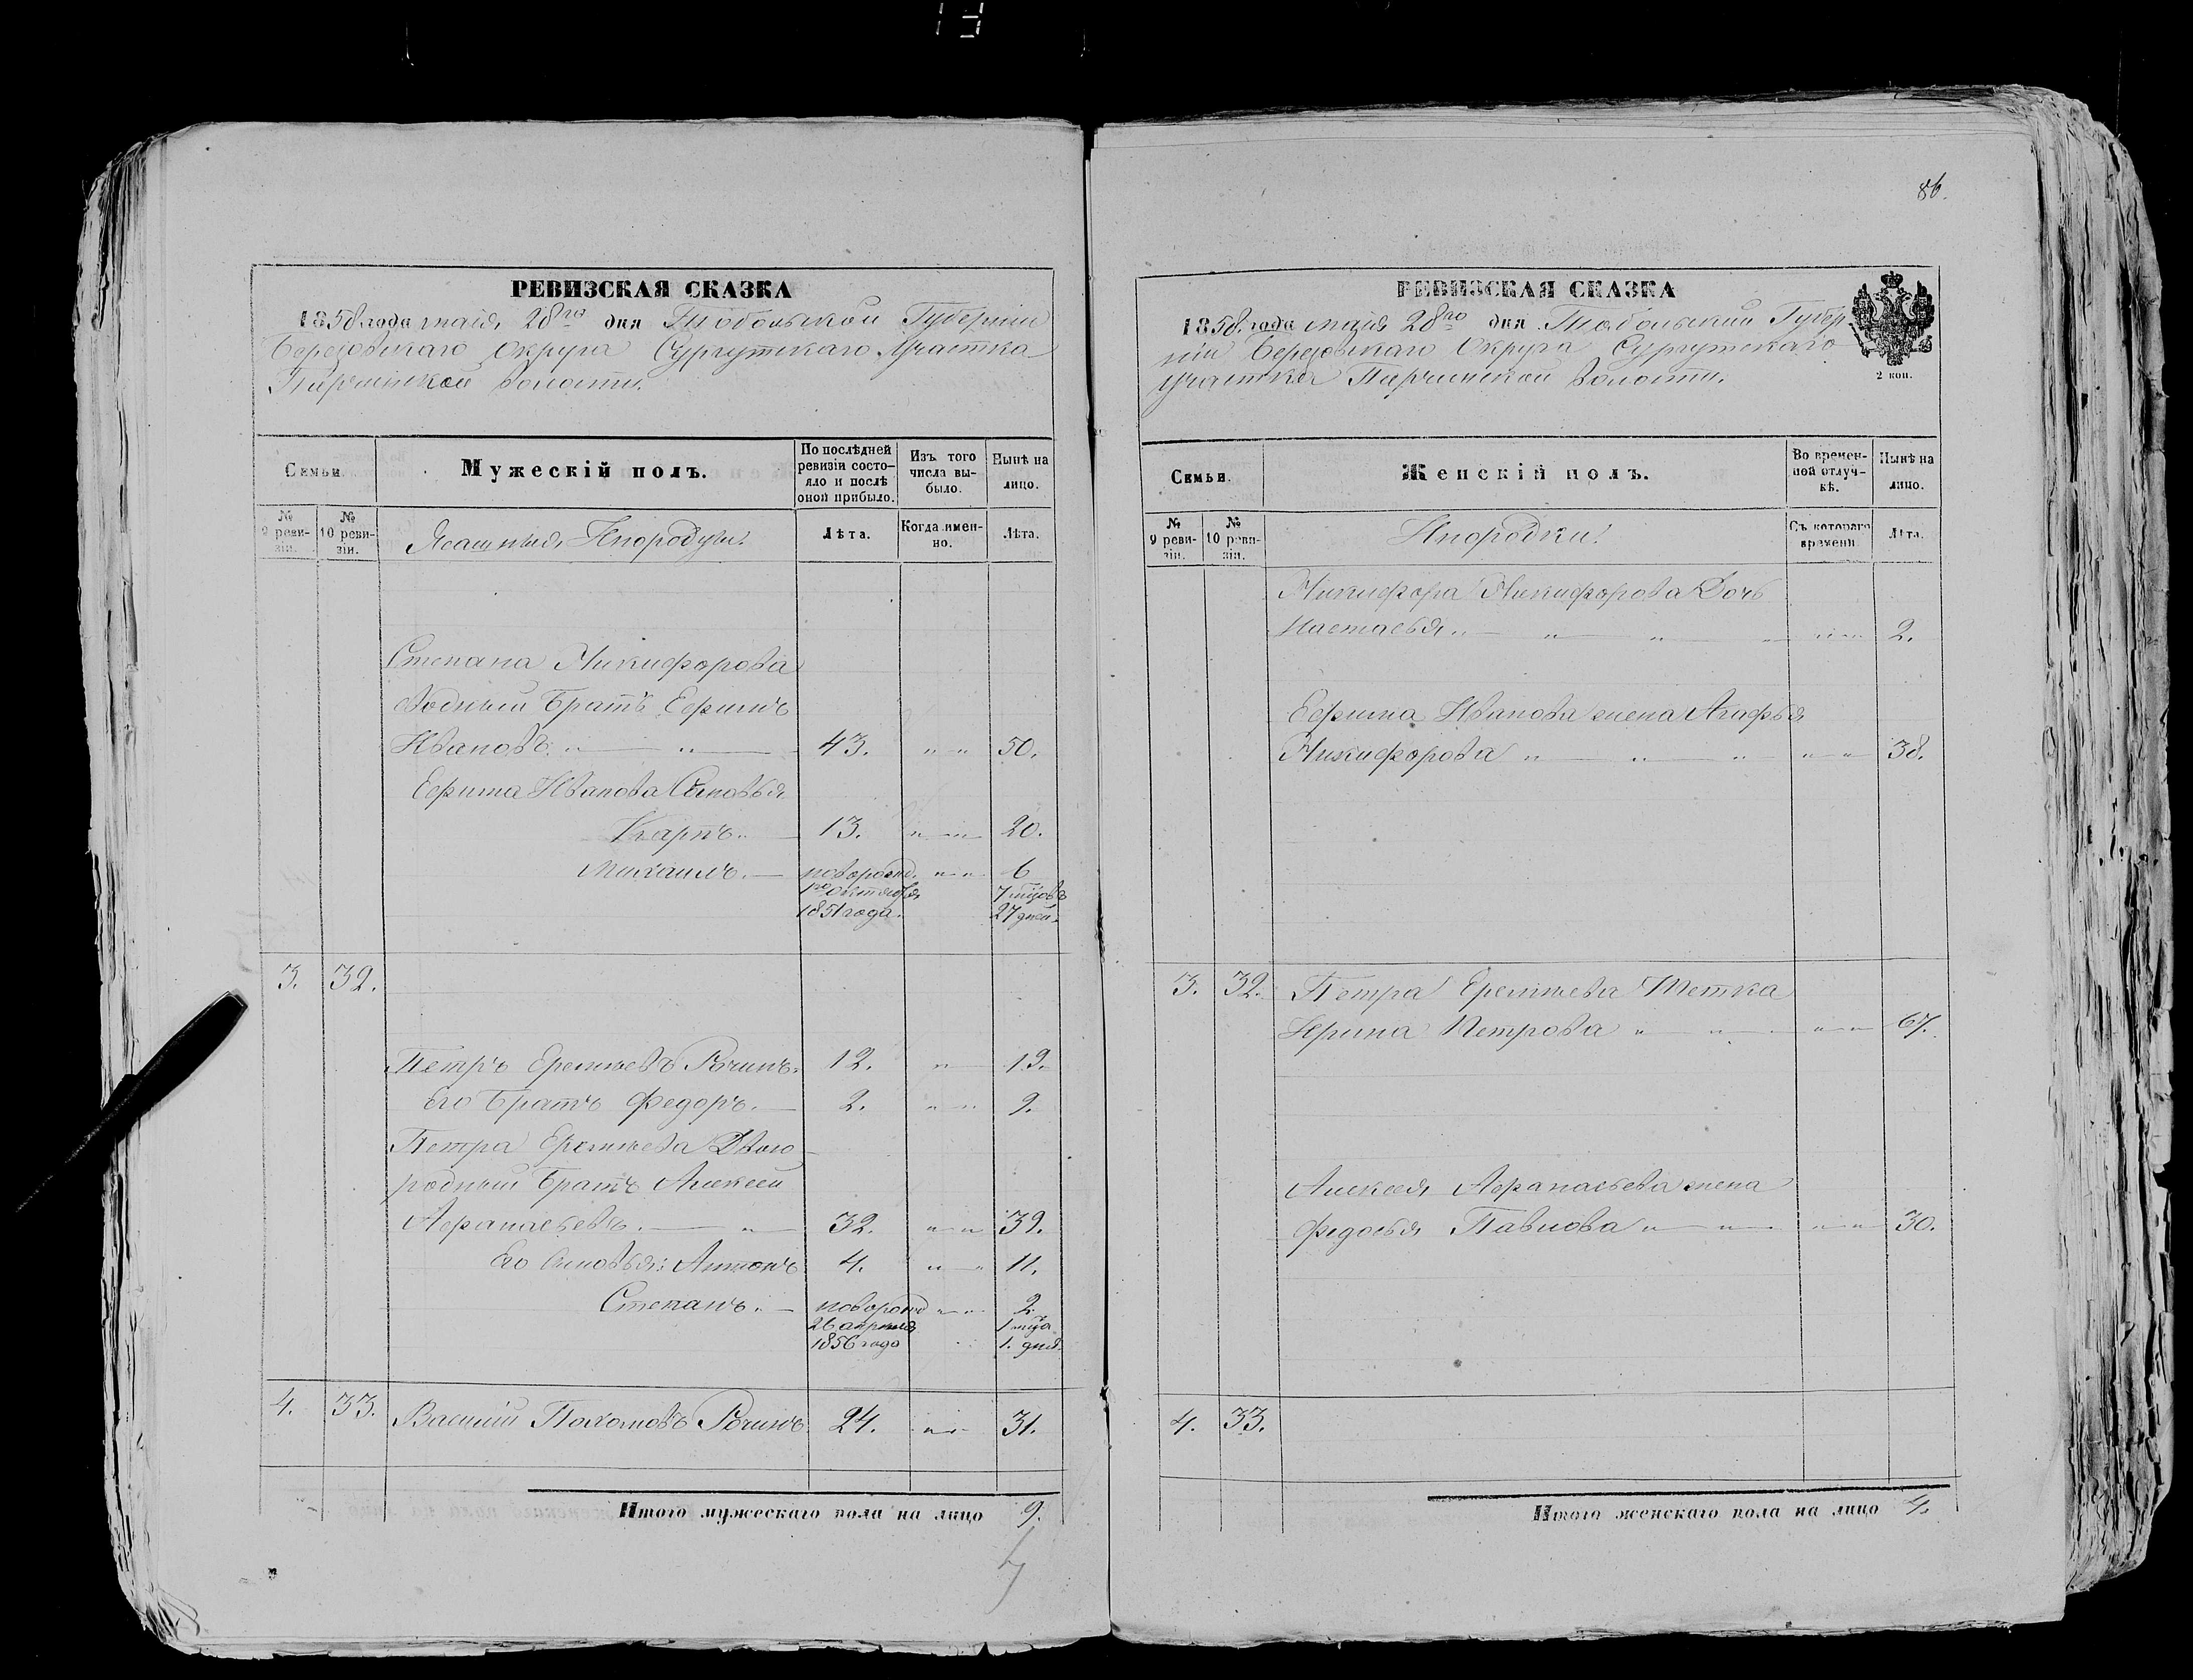 86.
РЕВИЗСКАЯ СКАЗКА
1858 года маія 28го дня Тобольской Губерніи
Березовскаго Округа Сургутскаго Участка
Пирчинской волости.
Семьи.
Мужескій полъ.
По послѣдней ревизіи состояло и послѣ оной прибыло.
Изъ того числа выбыло.
Нынѣ на лицо.
№ 9 ревизіи.
№ 10 ревизіи.
Ясашныя Инородцы.
Лѣта.
Когда именно.
Лѣта.
Степана Никифорова
родный Братъ Ефимъ
Ивановъ. 43. 50.
Ефима Иванова Сыновья
Карпъ. 13. 20.
Михаилъ. новорожд. 6
1го октября 7 мцовъ
1851 года. 27 дней.
3. 32.
Петръ Еремѣевъ Рочинъ. 12. 19.
Его Братъ Федоръ. 2. 9.
Петра Еремѣева Двою
родный Братъ Алексей
Афанасьевъ. 32. 39.
Его Сыновья: Антонъ 4. 11.
Степанъ. новорожд 2.
26 апреля 1 мца
1856 года 1. дня.
4. 33. Василій Пахомовъ Рочинъ 24. 31.
Итого мужескаго пола на лицо 9.
РЕВИЗСКАЯ СКАЗКА
1858. года маія 28го дня Тобольской Губер
ніи Березовскаго Округа Сургутскаго
участка Пирчинской волости.
2 коп.
Семьи.
Женскій полъ.
Во временной отлучкѣ.
Нынѣ на лицо.
№ 9 ревизіи.
№ 10 ревизіи.
Инородки.
Съ котораго времени.
Лѣта.
Никифора Никифорова Дочь
Настасья 2.
Ефима Иванова жена Агафья
Никифорова 38.
3. 32. Петра Еремѣева Тетка
Ирина Петрова 67.
Алексея Афанасьева жена
Федосья Павлова 30.
4. 33.
Итого женскаго пола на лицо 4.